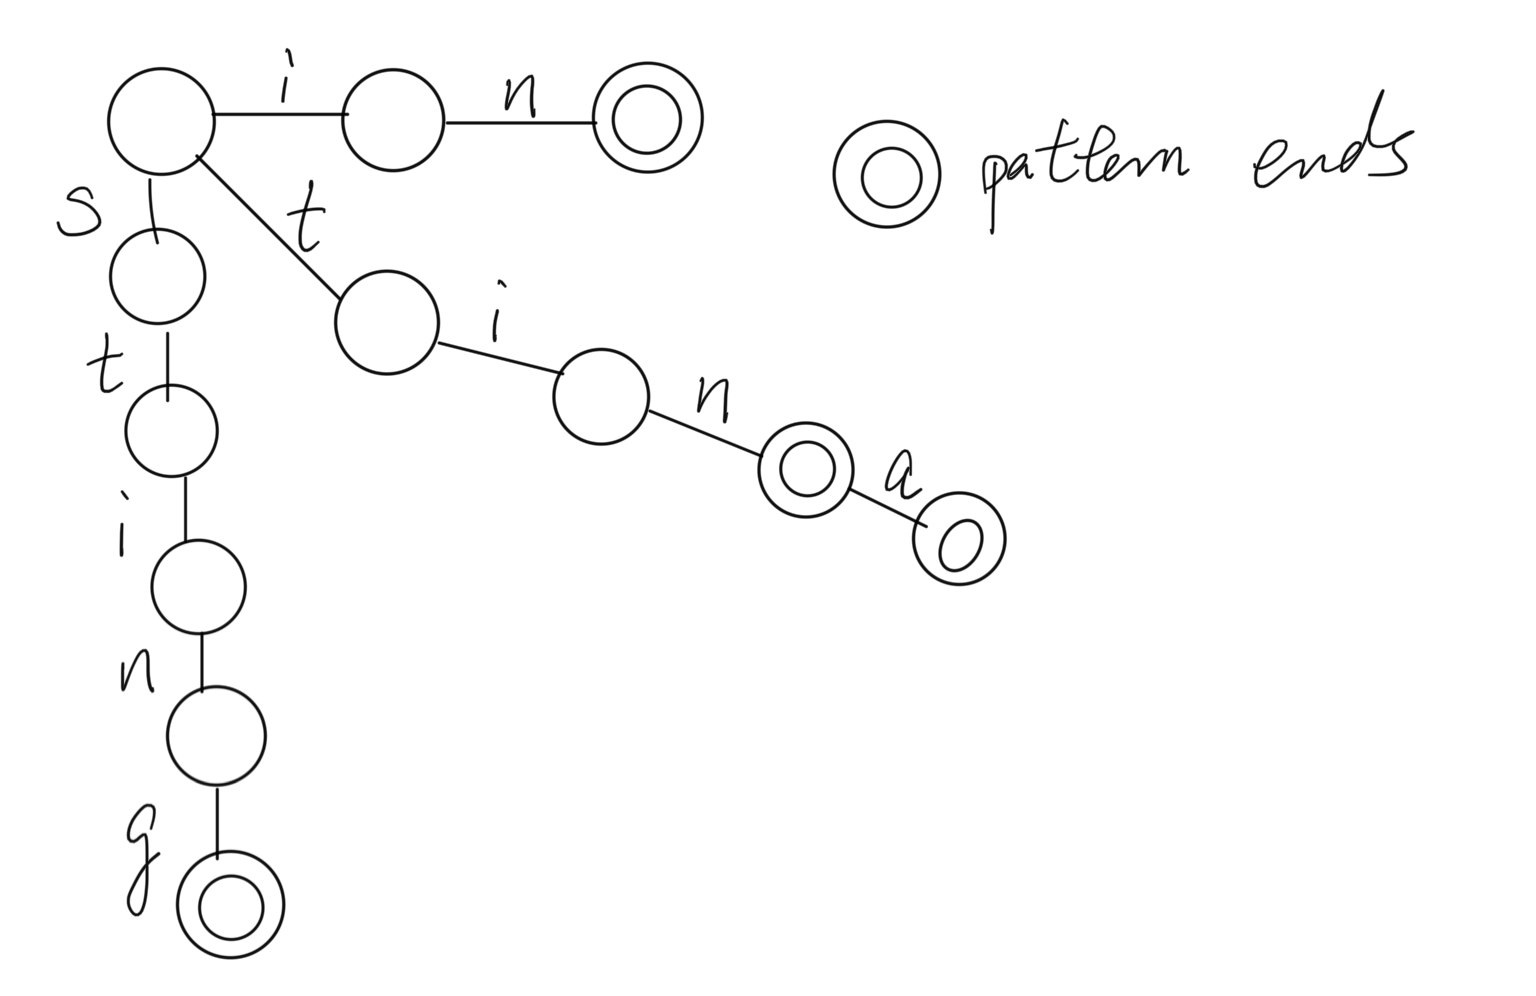 i
n
pattern ends
s
t
t
i
n
a
i
n
g